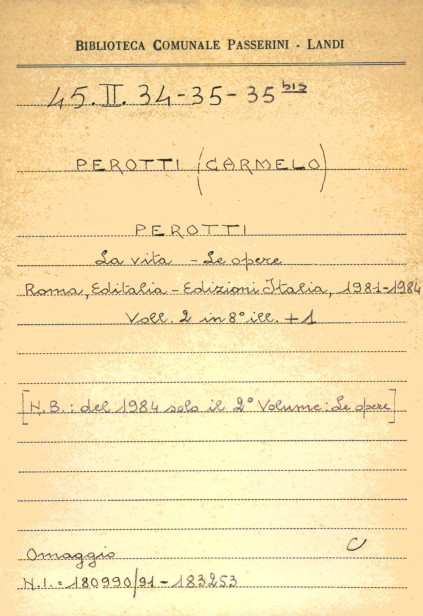 BIBLIOTECA COMUNALE PASSERINI - LANDI
45. II. 34-35-35 bis
PEROTTI (CARMELO)
PEROTTI
La vita - Le opere
Roma, Editalia - Edizioni Italia, 1981-1984
Voll. 2 in 8° ill. + 1
[N.B.: del 1984 solo il 2° Volume: Le opere]
C
Omaggio
N.I. = 180990/91 - 183253